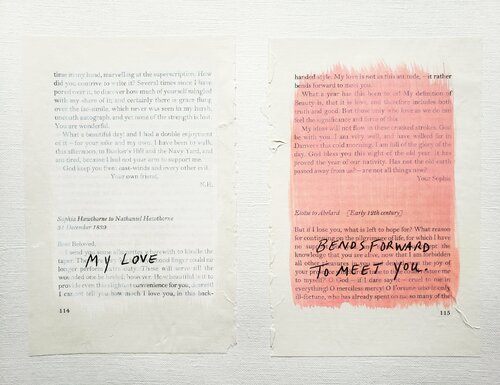 time in my hand, marvelling at the superscription. How
did you contrive to write it? Several times since I have
pored over it, to discover how much of yourself mingled
with my share of it; and certainly there is grace flung
over the fac-simile, which never was seen in my harsh,
uncouth autograph, and yet none of the strength is lost.
You are wonderful.
What a beautiful day! and I had a double enjoyment
of it—for your sake and my own. I have been to walk,
this afternoon, to Bunker's Hill and the Navy Yard, and
am tired, because I had not your arm to support me.
God keep you from east-winds and every other evil.
Your own friend,
N.H.
Sophia Hawthorne to Nathaniel Hawthorne
31 December 1839
Best Beloved,
I send you some allumettes wherewith to kindle the
taper. There are
finger could no
longer perform
These will serve all the
wounded one healed, however. How beautiful is it to
provide even this slightest convenience for you, dearest!
I cannot tell you how much I love you, in this back-
MY LOVE
114
handed style. My love is not in this attitude,—it rather
bends forward to meet you.
What a year has this been to us! My definition of
Beauty is, that it is love, and therefore includes both
truth and good. But those only who love as we do can
feel the significance and force of this.
My ideas will not flow in these crooked strokes. God
be with you. I am very well, and have walked far in
Danvers this cold morning. I am full of the glory of the
day. God bless you this night of the old year. It has
proved the year of our nativity. Has not the old earth
passed away from us?—are not all things new?
Your Sophie
Eloise to Abelard [Early 12th century]
But if I lose you, what is left to hope for? What reason
for continuing on the pilgrimage of life, for which I have
no support
knowledge that you are alive, now that I am forbidden
all other pleasures in you and denied even the joy of
your presence
me to myself? O God—if I dare say it—cruel to me in
everything! O merciless mercy! O Fortune who is only
ill-fortune, who has already spent on me so many of the
BENDS FORWARD
TO MEET YOU.
115